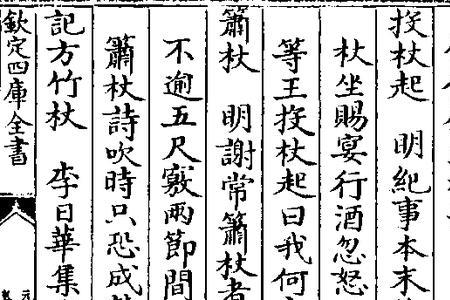 投杖起　明紀事本末
杖坐賜宴行酒忽怒
等王投杖起曰我何
簫杖　明謝常簫杖者
不逾五尺竅兩節間
簫杖詩吹時只恐成
記方竹杖　李日華集
欽定四庫全書